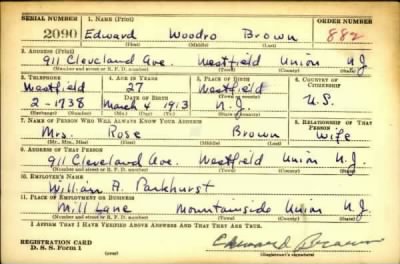 SERIAL NUMBER 1. NAME (Print) ORDER NUMBER
2090 Edward Woodro Brown 882
(First) (Middle) (Last)
2. ADDRESS (Print)
911 Cleveland Ave. Westfield Union N.J.
(Number and street or R. F. D. number) (Town) (County) (State)
3. TELEPHONE 4. AGE IN YEARS 5. PLACE OF BIRTH 6. COUNTRY OF CITIZENSHIP
Westfield 27 Westfield
DATE OF BIRTH (Town or county)
2-1738 March 4 1913 N.J. U.S.
(Exchange) (Number) (Mo.) (Day) (Yr.) (State or country)
7. NAME OF PERSON WHO WILL ALWAYS KNOW YOUR ADDRESS 8. RELATIONSHIP OF THAT PERSON
Mrs. Rose Brown Wife
(Mr., Mrs., Miss) (First) (Middle) (Last)
9. ADDRESS OF THAT PERSON
911 Cleveland Ave. Westfield Union N.J.
(Number and street or R. F. D. number) (Town) (County) (State)
10. EMPLOYER'S NAME
William A. Parkhurst
11. PLACE OF EMPLOYMENT OR BUSINESS
Mill Lane Mountainside Union N.J.
(Number and street or R. F. D. number) (Town) (County) (State)
I AFFIRM THAT I HAVE VERIFIED ABOVE ANSWERS AND THAT THEY ARE TRUE.
REGISTRATION CARD
D. S. S. Form 1 Edward Brown
(Registrant's signature)